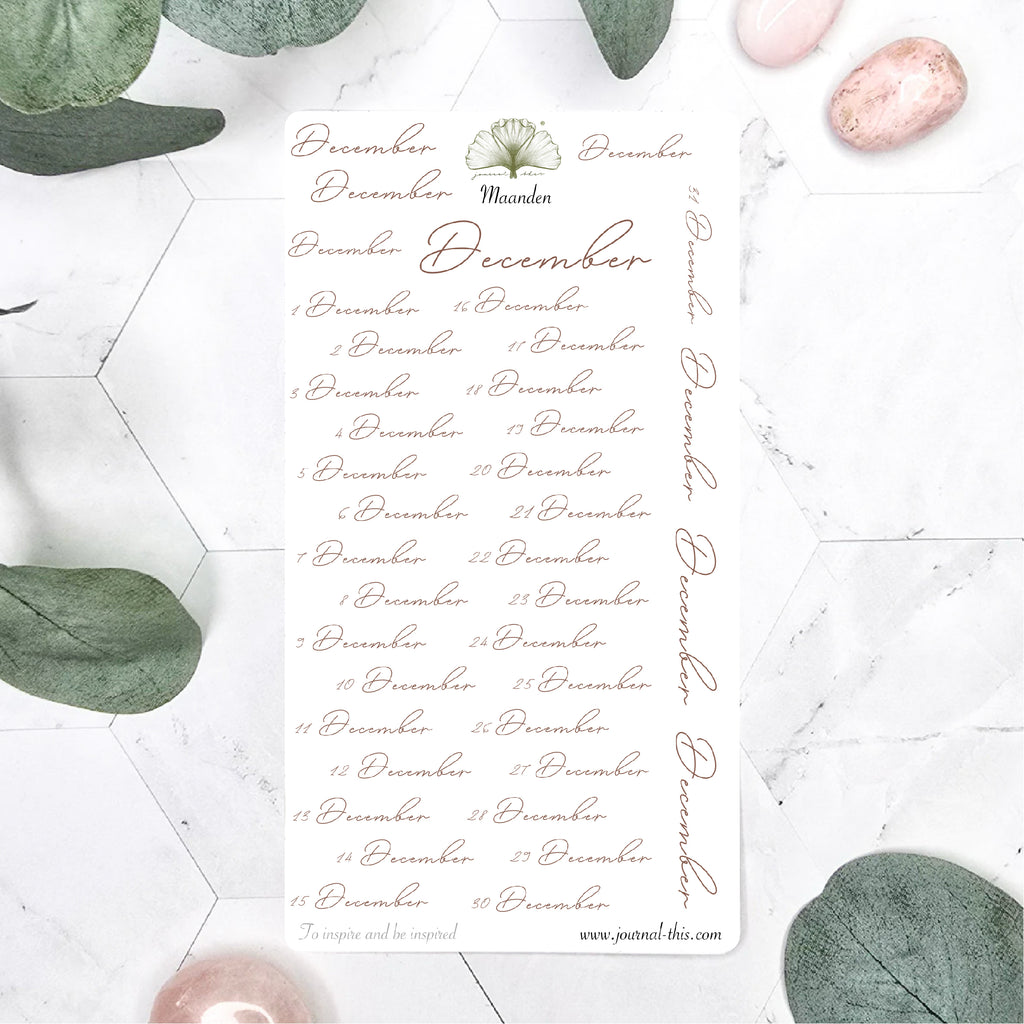 December
journal this
December
Maanden
December
December
December
1 December
16 December
2 December
17 December
3 December
18 December
4 December
19 December
5 December
20 December
6 December
21 December
7 December
22 December
8 December
23 December
9 December
24 December
10 December
25 December
11 December
26 December
12 December
27 December
13 December
28 December
14 December
29 December
15 December
30 December
31 December
December
December
December
To inspire and be inspired
www.journal-this.com